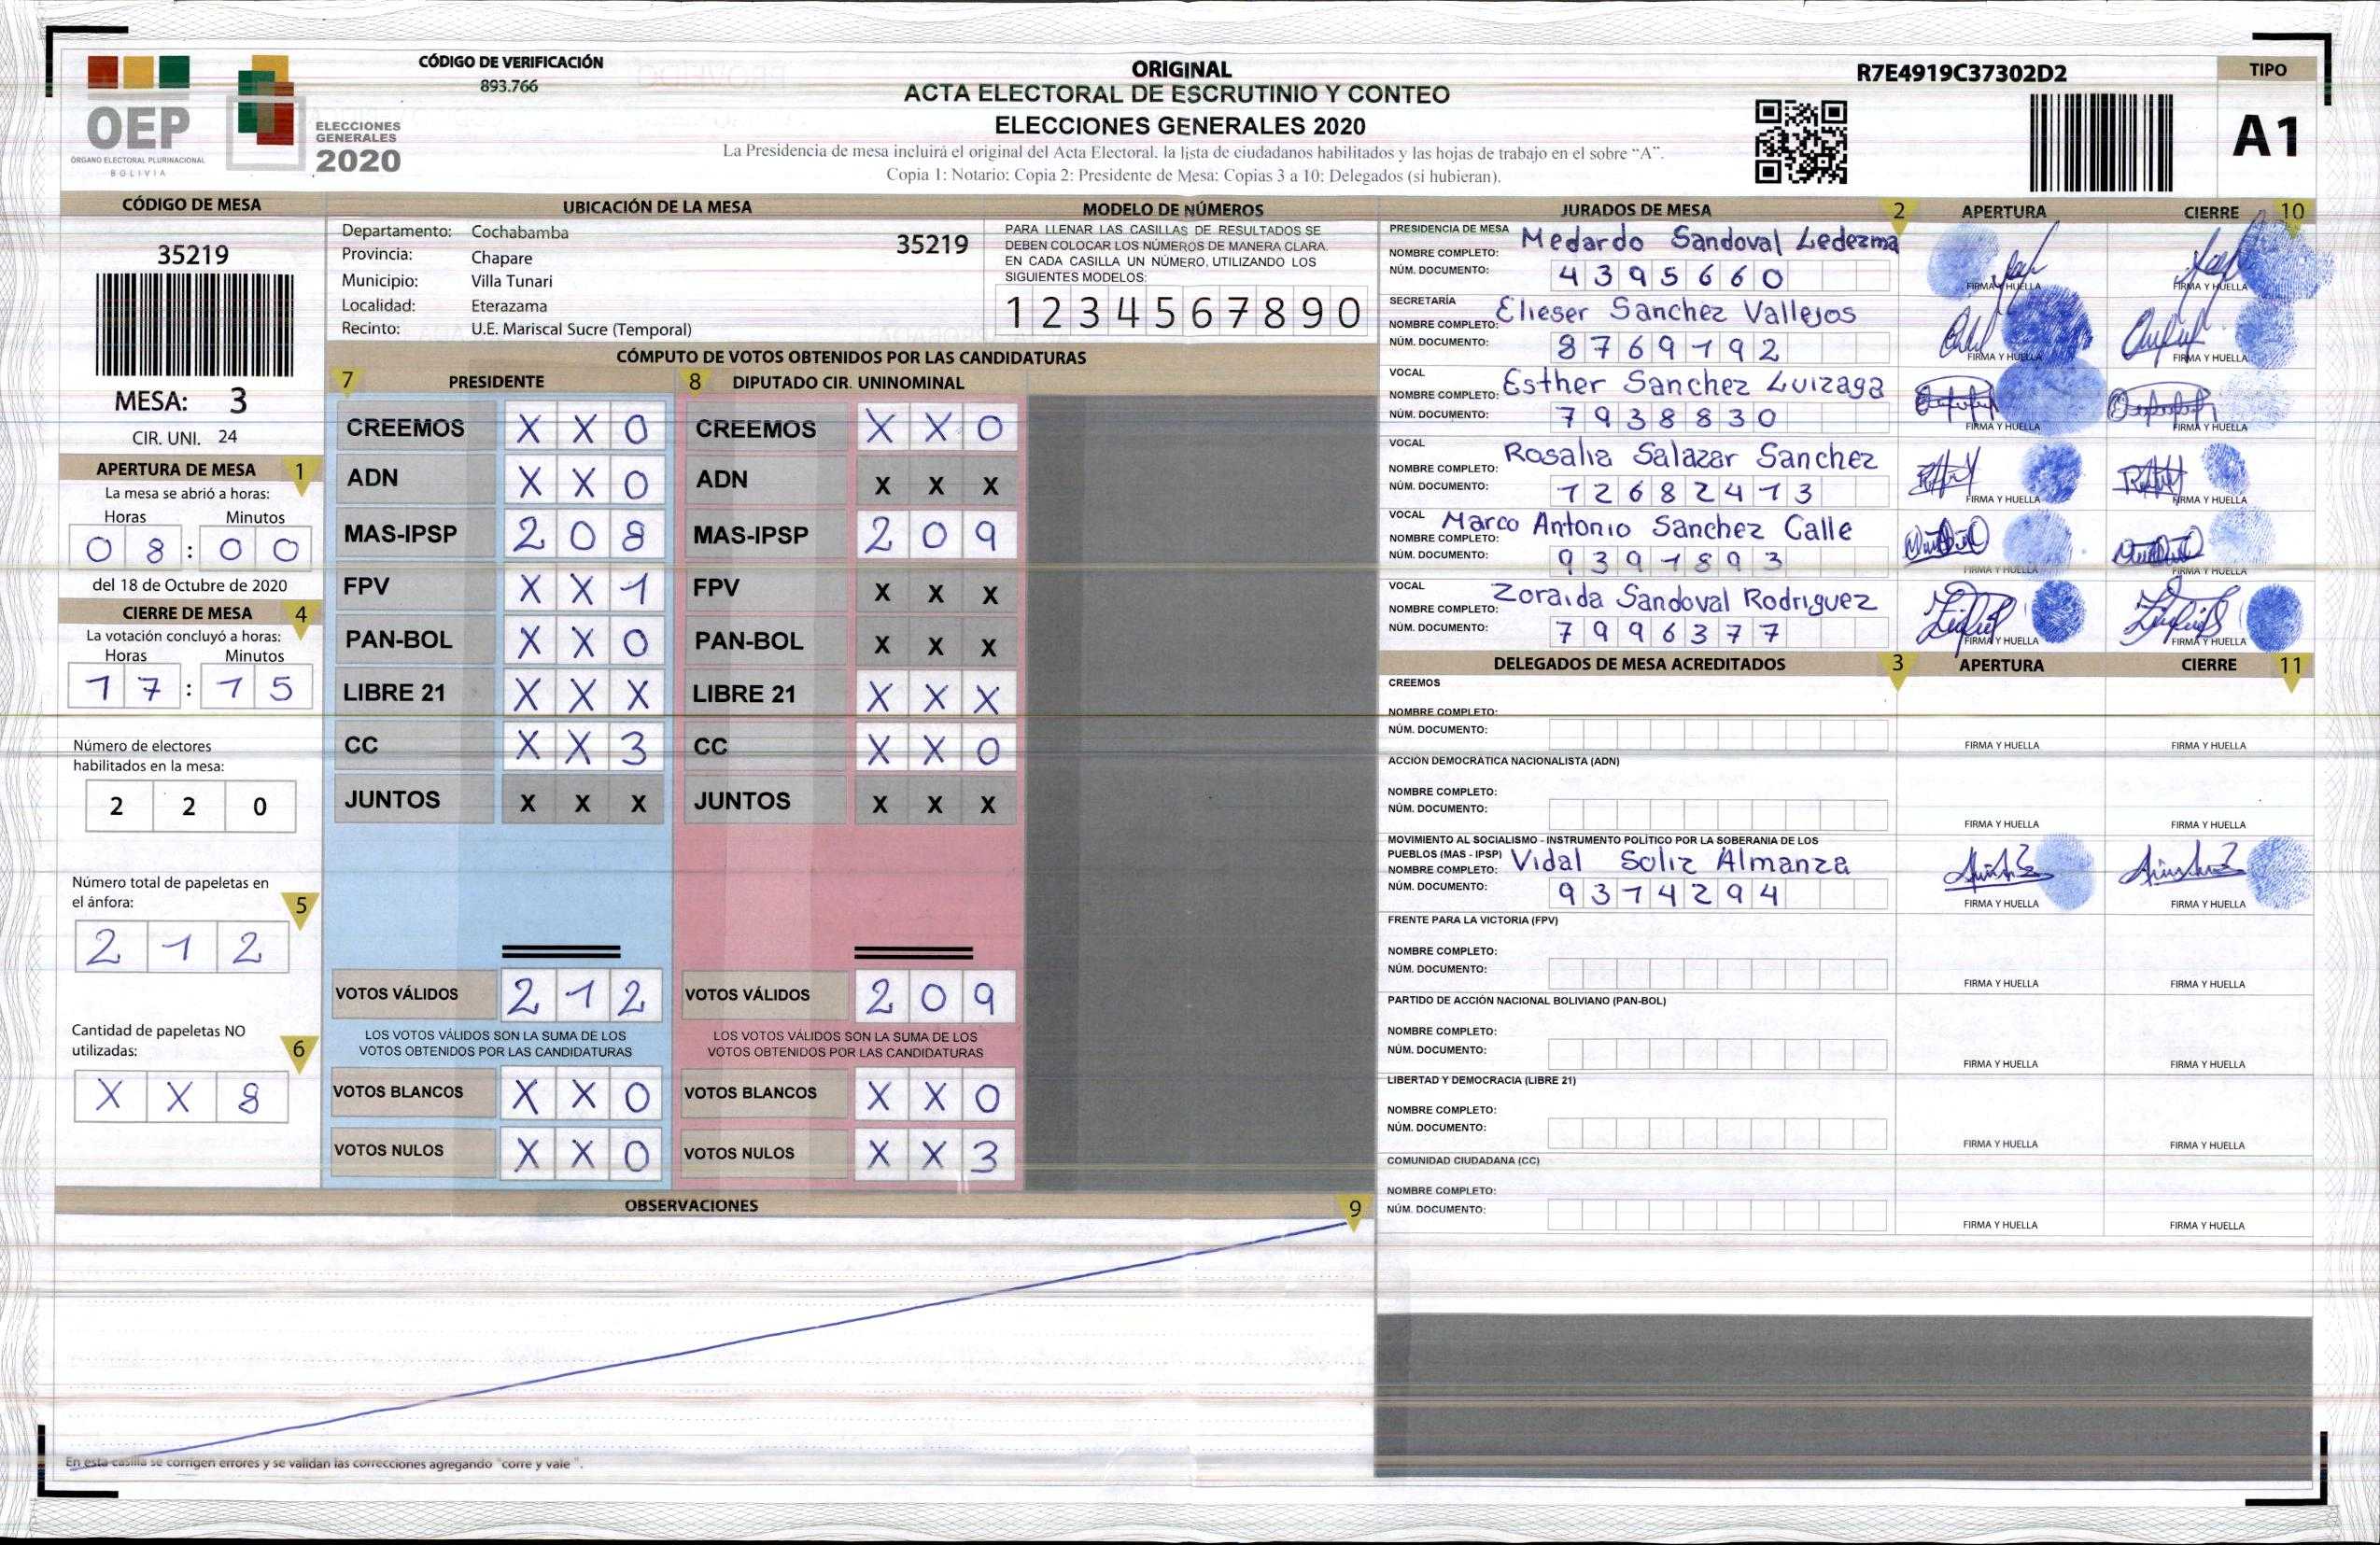 OEP
ÓRGANO ELECTORAL PLURINACIONAL
BOLIVIA
ELECCIONES
GENERALES
2020
CÓDIGO DE VERIFICACIÓN
893.766
ORIGINAL
ACTA ELECTORAL DE ESCRUTINIO Y CONTEO
ELECCIONES GENERALES 2020
La Presidencia de mesa incluirá el original del Acta Electoral, la lista de ciudadanos habilitados y las hojas de trabajo en el sobre “A”.
Copia 1: Notario; Copia 2: Presidente de Mesa; Copias 3 a 10: Delegados (si hubieran).
R7E4919C37302D2
TIPO
A1
CÓDIGO DE MESA
35219
MESA: 3
CIR. UNI. 24
APERTURA DE MESA 1
La mesa se abrió a horas:
Horas Minutos
0 8 : 0 0
del 18 de Octubre de 2020
CIERRE DE MESA 4
La votación concluyó a horas:
Horas Minutos
1 7 : 1 5
Número de electores
habilitados en la mesa:
2 2 0
Número total de papeletas en
el ánfora: 5
2 1 2
Cantidad de papeletas NO
utilizadas: 6
X X 8
UBICACIÓN DE LA MESA
Departamento: Cochabamba 35219
Provincia: Chapare
Municipio: Villa Tunari
Localidad: Eterazama
Recinto: U.E. Mariscal Sucre (Temporal)
MODELO DE NÚMEROS
PARA LLENAR LAS CASILLAS DE RESULTADOS SE
DEBEN COLOCAR LOS NÚMEROS DE MANERA CLARA.
EN CADA CASILLA UN NÚMERO, UTILIZANDO LOS
SIGUIENTES MODELOS:
1 2 3 4 5 6 7 8 9 0
CÓMPUTO DE VOTOS OBTENIDOS POR LAS CANDIDATURAS
7 PRESIDENTE 8 DIPUTADO CIR. UNINOMINAL
CREEMOS X X 0 CREEMOS X X 0
ADN X X 0 ADN X X X
MAS-IPSP 2 0 8 MAS-IPSP 2 0 9
FPV X X 1 FPV X X X
PAN-BOL X X 0 PAN-BOL X X X
LIBRE 21 X X X LIBRE 21 X X X
CC X X 3 CC X X 0
JUNTOS X X X JUNTOS X X X
VOTOS VÁLIDOS 2 1 2 VOTOS VÁLIDOS 2 0 9
LOS VOTOS VÁLIDOS SON LA SUMA DE LOS LOS VOTOS VÁLIDOS SON LA SUMA DE LOS
VOTOS OBTENIDOS POR LAS CANDIDATURAS VOTOS OBTENIDOS POR LAS CANDIDATURAS
VOTOS BLANCOS X X 0 VOTOS BLANCOS X X 0
VOTOS NULOS X X 0 VOTOS NULOS X X 3
OBSERVACIONES 9
En esta casilla se corrigen errores y se validan las correcciones agregando "corre y vale".
JURADOS DE MESA 2 APERTURA CIERRE 10
PRESIDENCIA DE MESA
NOMBRE COMPLETO: Medardo Sandoval Ledezma
NÚM. DOCUMENTO: 4395660
FIRMA Y HUELLA FIRMA Y HUELLA
SECRETARÍA
NOMBRE COMPLETO: Elieser Sanchez Vallejos
NÚM. DOCUMENTO: 8769192
FIRMA Y HUELLA FIRMA Y HUELLA
VOCAL
NOMBRE COMPLETO: Esther Sanchez Luizaga
NÚM. DOCUMENTO: 7938830
FIRMA Y HUELLA FIRMA Y HUELLA
VOCAL
NOMBRE COMPLETO: Rosalia Salazar Sanchez
NÚM. DOCUMENTO: 12682413
FIRMA Y HUELLA FIRMA Y HUELLA
VOCAL
NOMBRE COMPLETO: Marco Antonio Sanchez Calle
NÚM. DOCUMENTO: 9391893
FIRMA Y HUELLA FIRMA Y HUELLA
VOCAL
NOMBRE COMPLETO: Zoraida Sandoval Rodriguez
NÚM. DOCUMENTO: 7996377
FIRMA Y HUELLA FIRMA Y HUELLA
DELEGADOS DE MESA ACREDITADOS 3 APERTURA CIERRE 11
CREEMOS
NOMBRE COMPLETO:
NÚM. DOCUMENTO:
FIRMA Y HUELLA FIRMA Y HUELLA
ACCIÓN DEMOCRÁTICA NACIONALISTA (ADN)
NOMBRE COMPLETO:
NÚM. DOCUMENTO:
FIRMA Y HUELLA FIRMA Y HUELLA
MOVIMIENTO AL SOCIALISMO - INSTRUMENTO POLÍTICO POR LA SOBERANIA DE LOS
PUEBLOS (MAS - IPSP)
NOMBRE COMPLETO: Vidal Soliz Almanza
NÚM. DOCUMENTO: 9374294
FIRMA Y HUELLA FIRMA Y HUELLA
FRENTE PARA LA VICTORIA (FPV)
NOMBRE COMPLETO:
NÚM. DOCUMENTO:
FIRMA Y HUELLA FIRMA Y HUELLA
PARTIDO DE ACCIÓN NACIONAL BOLIVIANO (PAN-BOL)
NOMBRE COMPLETO:
NÚM. DOCUMENTO:
FIRMA Y HUELLA FIRMA Y HUELLA
LIBERTAD Y DEMOCRACIA (LIBRE 21)
NOMBRE COMPLETO:
NÚM. DOCUMENTO:
FIRMA Y HUELLA FIRMA Y HUELLA
COMUNIDAD CIUDADANA (CC)
NOMBRE COMPLETO:
NÚM. DOCUMENTO:
FIRMA Y HUELLA FIRMA Y HUELLA